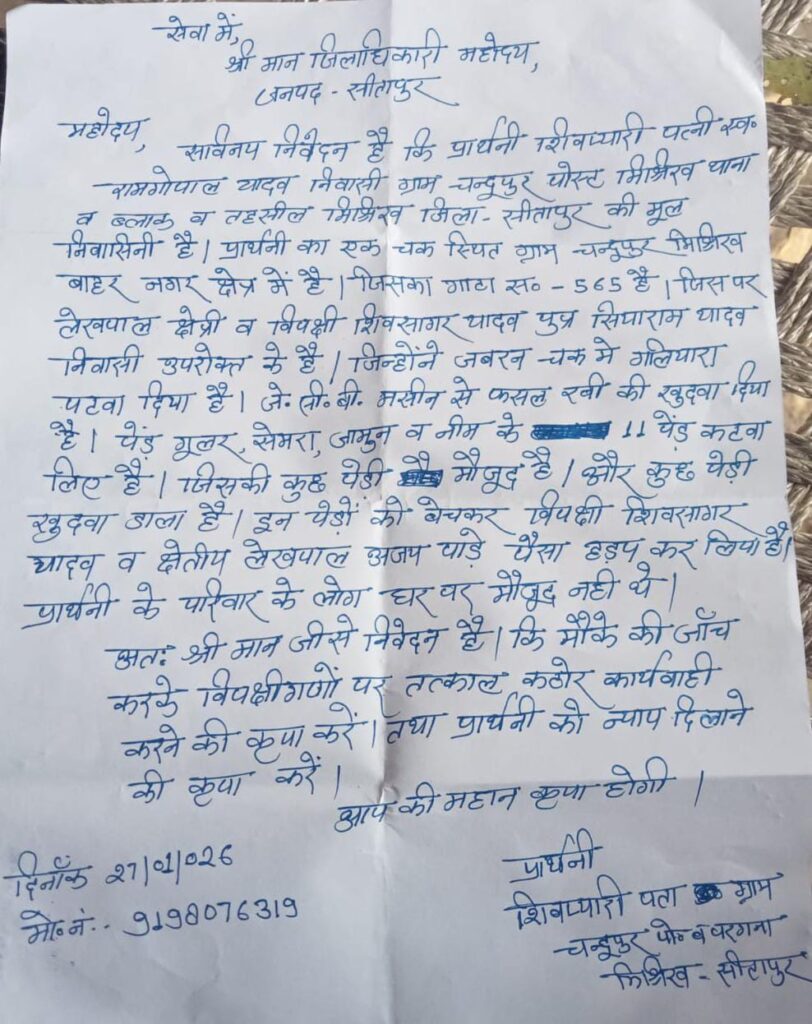 सेवा में,
श्री मान जिलाधिकारी महोदय,
जनपद - सीतापुर
महोदय,
सविनय निवेदन है कि प्रार्थनी शिवप्यारी पत्नी स्व०
रामगोपाल यादव निवासी ग्राम चन्दूपुर पोस्ट मिश्रिख थाना
व ब्लाक व तहसील मिश्रिख जिला - सीतापुर की मूल
निवासिनी है। प्रार्थनी का एक चक स्थित ग्राम चन्दूपुर मिश्रिख
बाहर नगर क्षेत्र में है। जिसका गाटा स० - 565 है। जिस पर
लेखपाल क्षेत्री व विपक्षी शिवसागर यादव पुत्र सियाराम यादव
निवासी उपरोक्त के है। जिन्होंने जबरन चक मे गलियारा
पटवा दिया है। जे० सी० बी० मसीन से फसल रबी की खुदवा दिया
है। पेंड़ गूलर, सेमरा, जामुन व नीम के 11 पेंड़ कटवा
लिए हैं। जिसकी कुछ पेड़ी मौजूद है। और कुछ पेड़ी
खुदवा डाला है। इन पेड़ों को बेचकर विपक्षी शिवसागर
यादव व क्षेतीय लेखपाल अजय पाड़े पैसा हड़प कर लिया है।
प्रार्थनी के परिवार के लोग घर पर मौजूद नही थे।
अतः श्री मान जी से निवेदन है। कि मौके की जाँच
करके विपक्षीगणों पर तत्काल कठोर कार्यवाही
करने की कृपा करें। तथा प्रार्थनी को न्याय दिलाने
की कृपा करें।
आप की महान कृपा होगी।
दिनाँक 27/01/026
मो० नं०. 9198076319
प्रार्थनी
शिवप्यारी पता ग्राम
चन्दूपुर पो० व परगना
मिश्रिख - सीतापुर